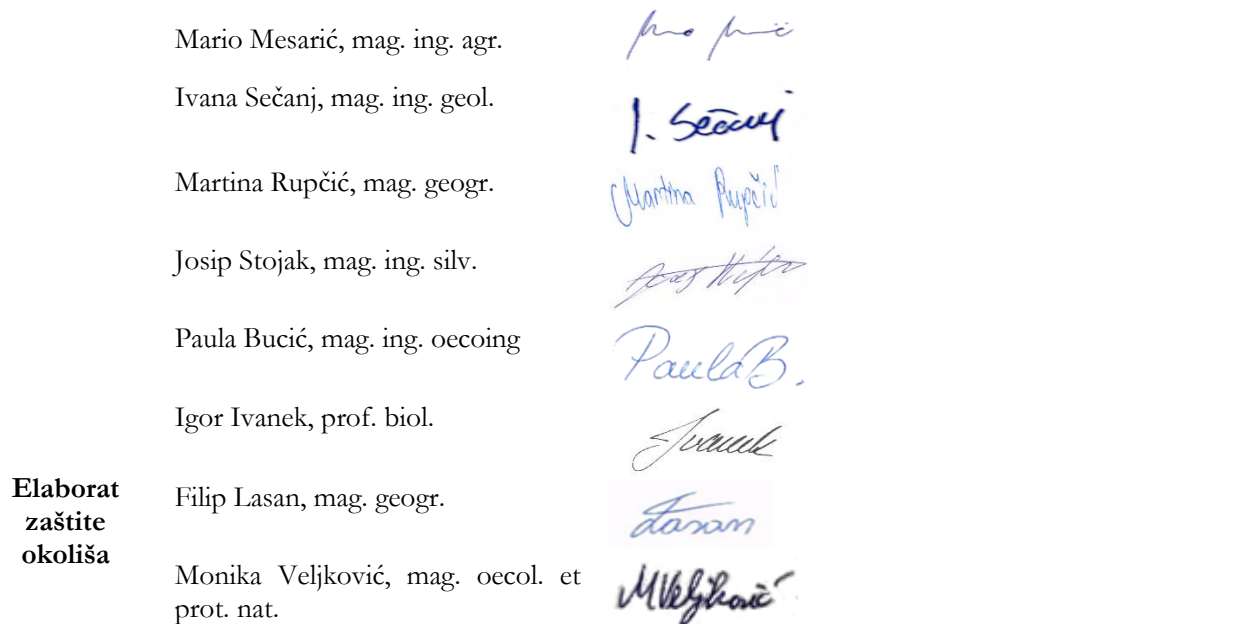 Mario Mesarić, mag. ing. agr.
Ivana Sečanj, mag. ing. geol.
I. Sečanj
Martina Rupčić, mag. geogr.
Martina Rupčić
Josip Stojak, mag. ing. silv.
Paula Bucić, mag. ing. oecoing
PaulaB.
Igor Ivanek, prof. biol.
Ivanek
Elaborat
zaštite
okoliša
Filip Lasan, mag. geogr.
Lasan
Monika Veljković, mag. oecol. et
prot. nat.
MVeljković